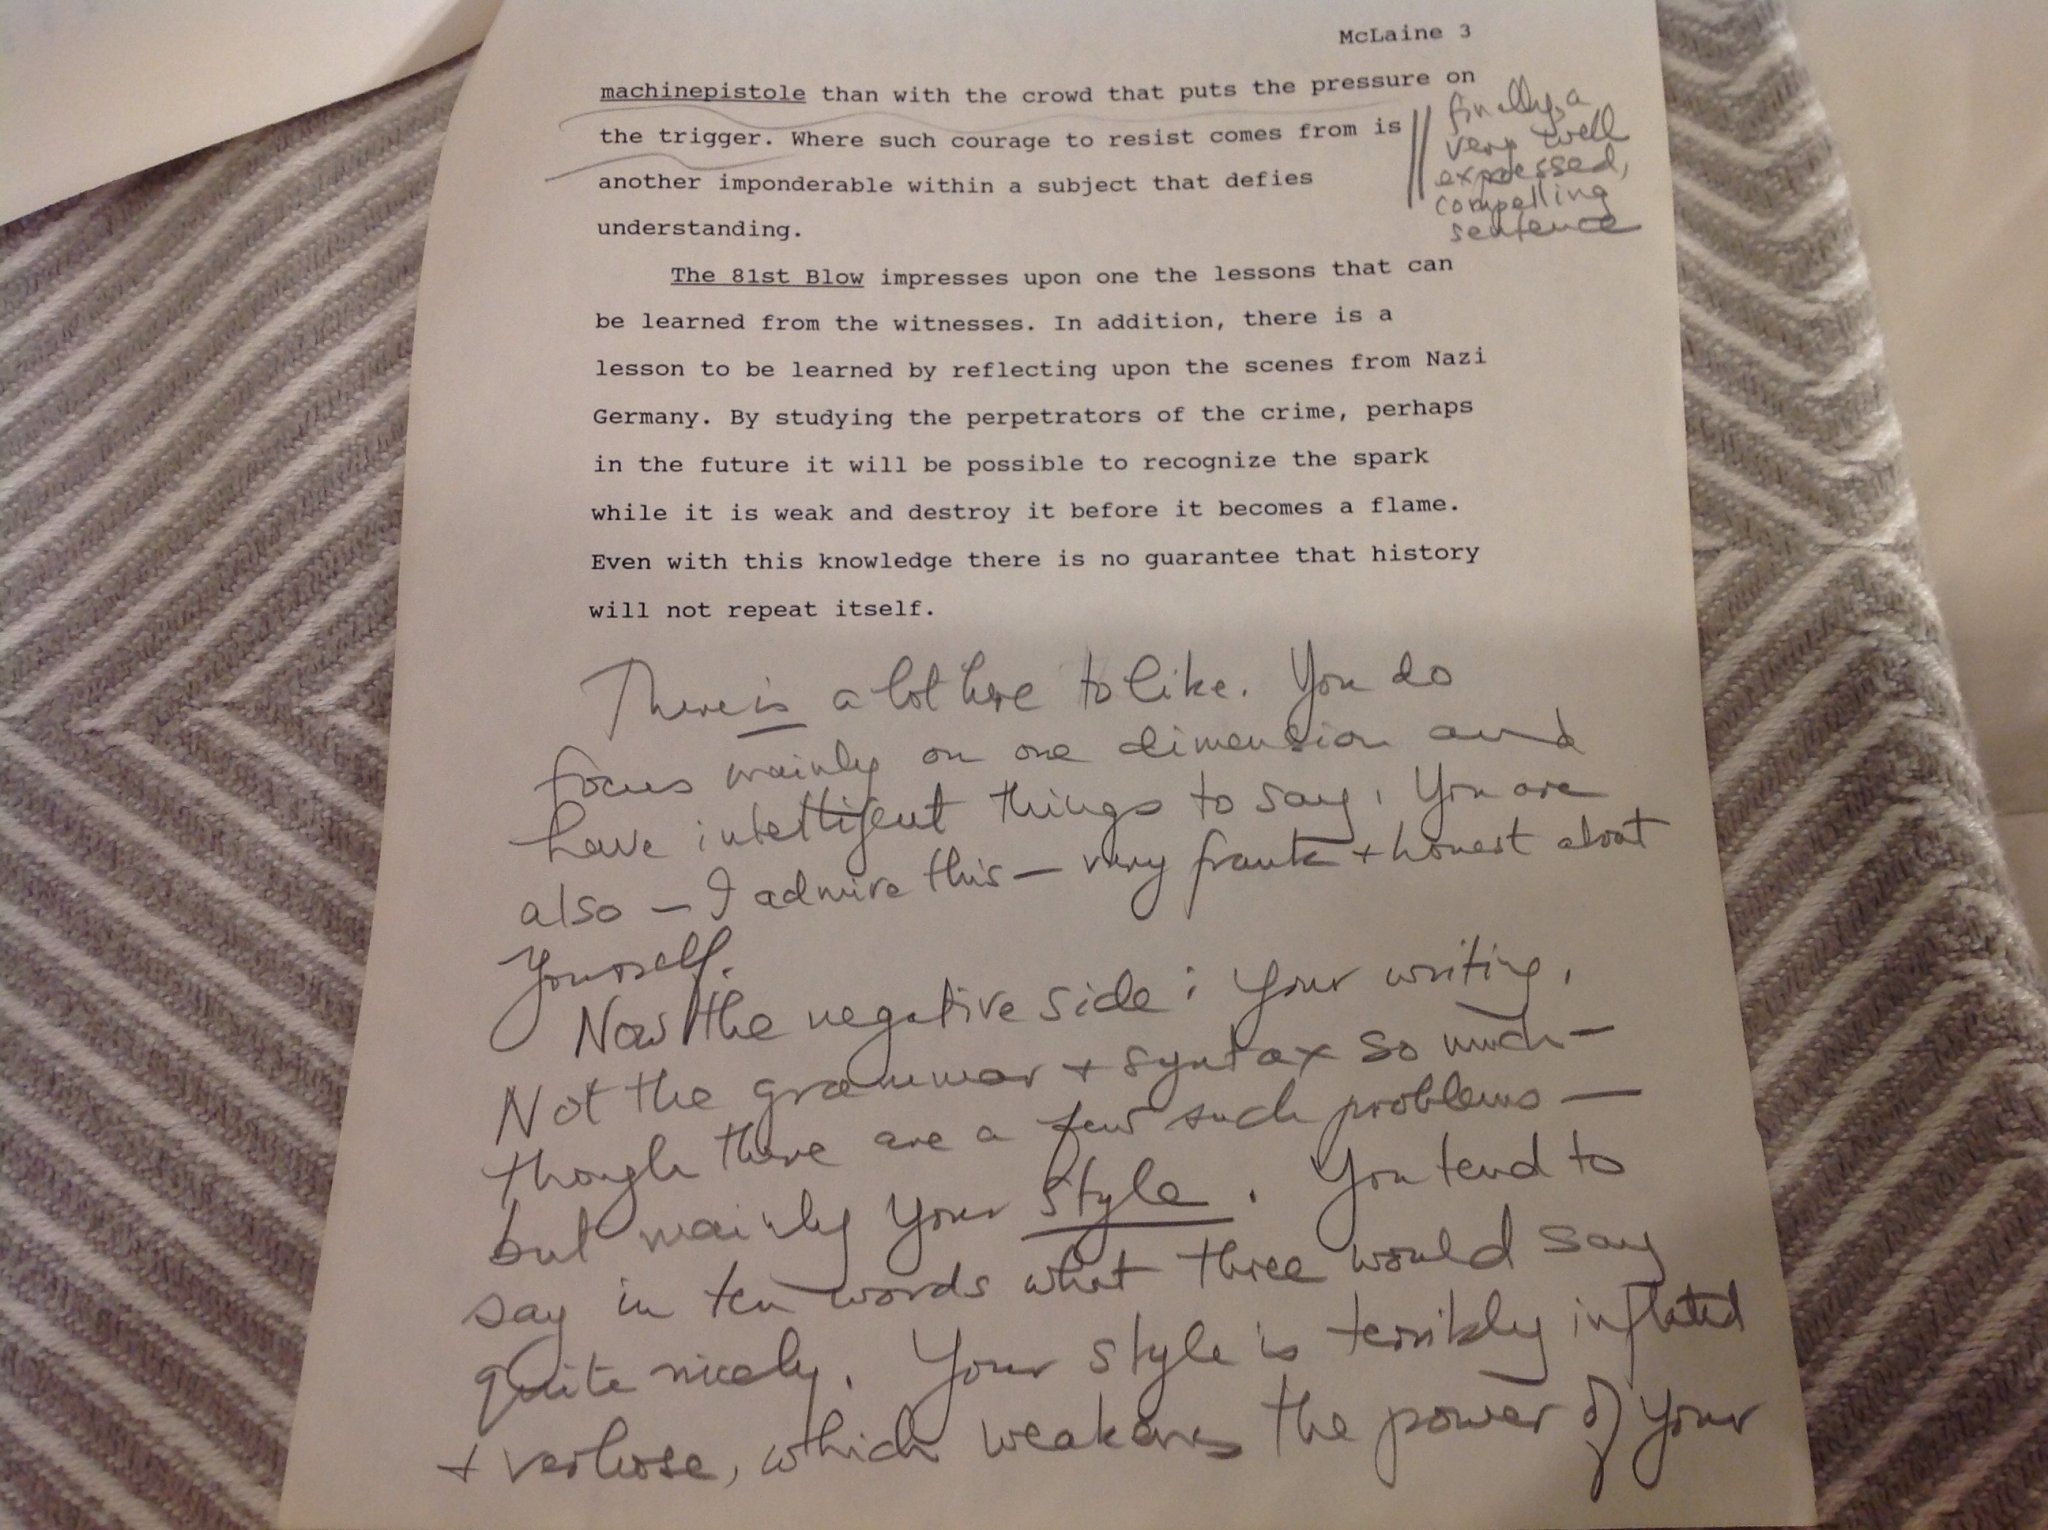 McLaine 3
machinepistole than with the crowd that puts the pressure on
the trigger. Where such courage to resist comes from is
another imponderable within a subject that defies
understanding.
finally, a
very well
expressed,
compelling
sentence
The 81st Blow impresses upon one the lessons that can
be learned from the witnesses. In addition, there is a
lesson to be learned by reflecting upon the scenes from Nazi
Germany. By studying the perpetrators of the crime, perhaps
in the future it will be possible to recognize the spark
while it is weak and destroy it before it becomes a flame.
Even with this knowledge there is no guarantee that history
will not repeat itself.
There is a lot here to like. You do
focus mainly on one dimension and
have intelligent things to say. You are
also — I admire this — very frank + honest about
yourself.
Now the negative side: Your writing.
Not the grammar + syntax so much —
though there are a few such problems —
but mainly your style. You tend to
say in ten words what three would say
quite nicely. Your style is terribly inflated
+ verbose, which weakens the power of your